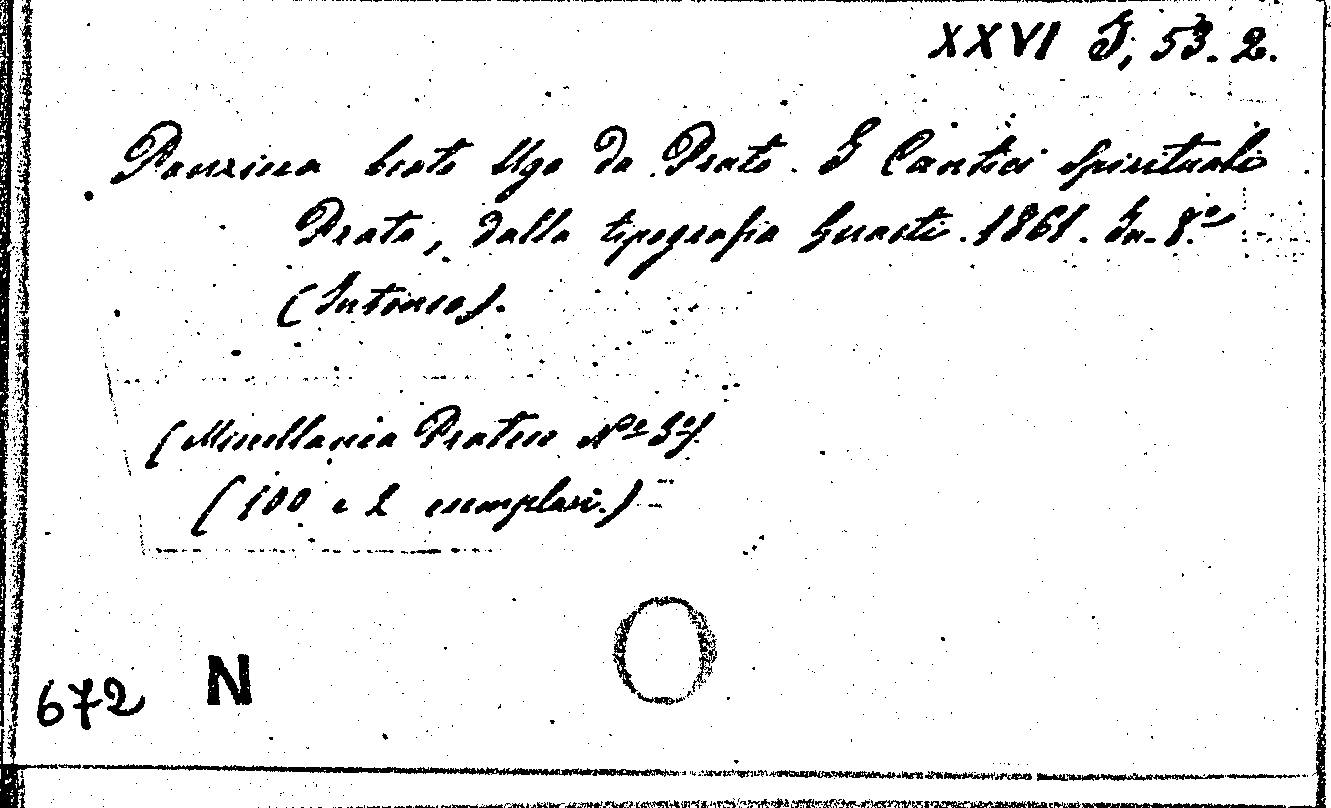 XXVI I, 53. 2.
Panziera beato Ugo da Prato. I Cantici spirituali
Prato, dalla tipografia Guasti. 1861. In-8.º
(Intonso).
(Miscellanea Pratese Nº 3º)
(100 e 2 esemplari.)
672 N